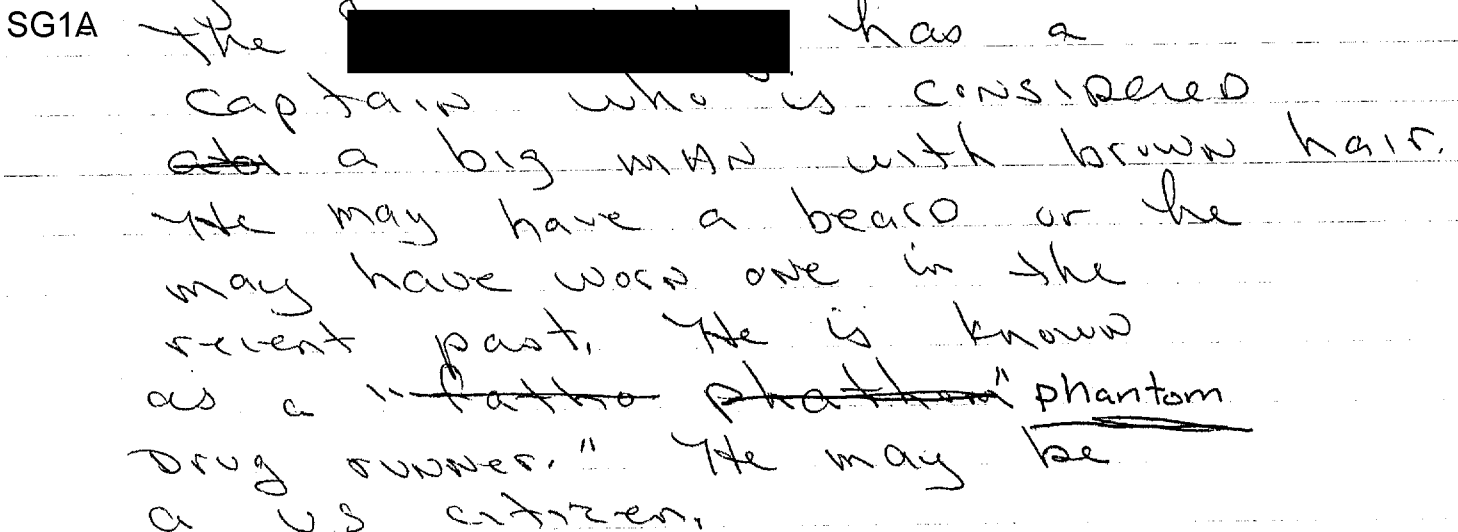 SG1A
The has a
captain who is considered
a big man with brown hair.
He may have a beard or he
may have worn one in the
recent past. He is known
as a "fatho phathom" phantom
Drug runner." He may be
a US citizen.